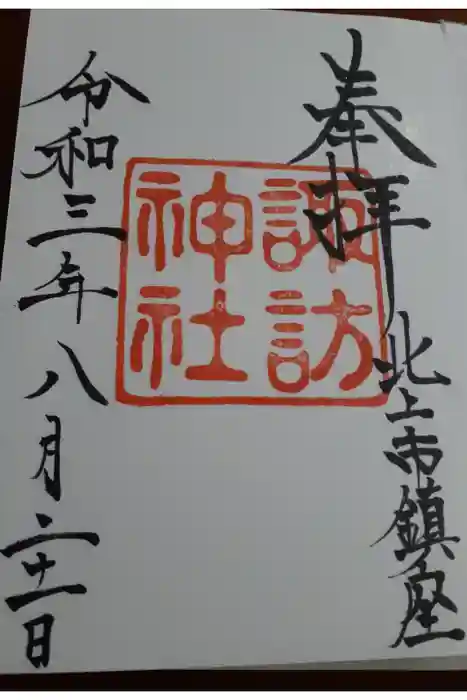 奉拝
北上市鎮座
諏訪
神社
令和三年八月二十一日